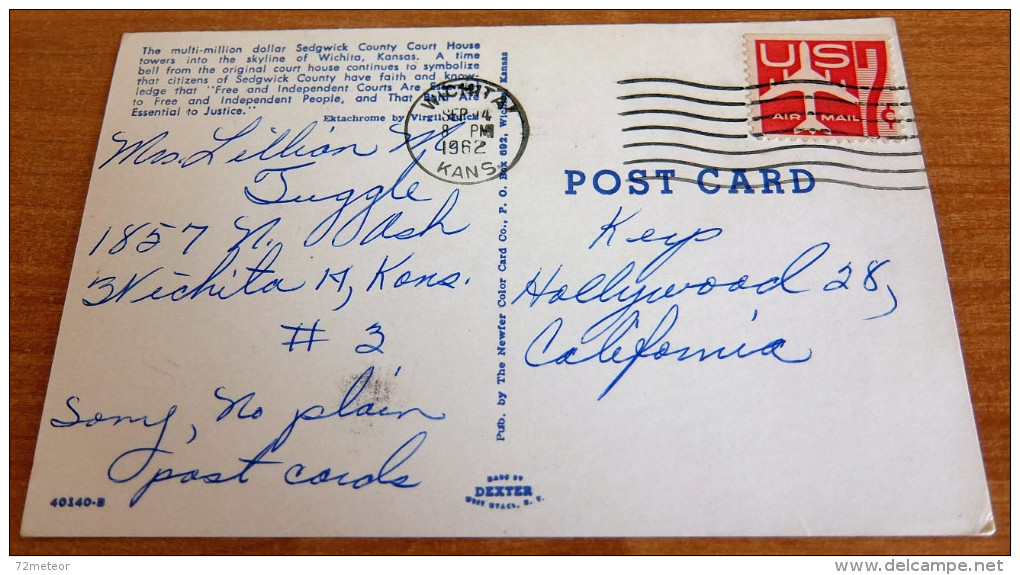 The multi-million dollar Sedgwick County Court House
towers into the skyline of Wichita, Kansas. A time
bell from the original court house continues to symbolize
that citizens of Sedgwick County have faith and know-
ledge that "Free and Independent Courts Are
to Free and Independent People, and That Are
Essential to Justice."
Ektachrome by
Mrs. Lillian M.
Tuggle
1857 N. Ash
Wichita 14, Kans.
# 3
Sorry, No plain
post cards
40140-B
WICHITA
SEP 14
8 PM
1962
KANS.
Pub. by The Newfer Color Card Co., P. O. Box 692, Kansas
MADE BY
DEXTER
WEST NYACK, N. Y.
US
7¢
AIR MAIL
POST CARD
Keys
Hollywood 28,
California
72meteor
delcampe.net